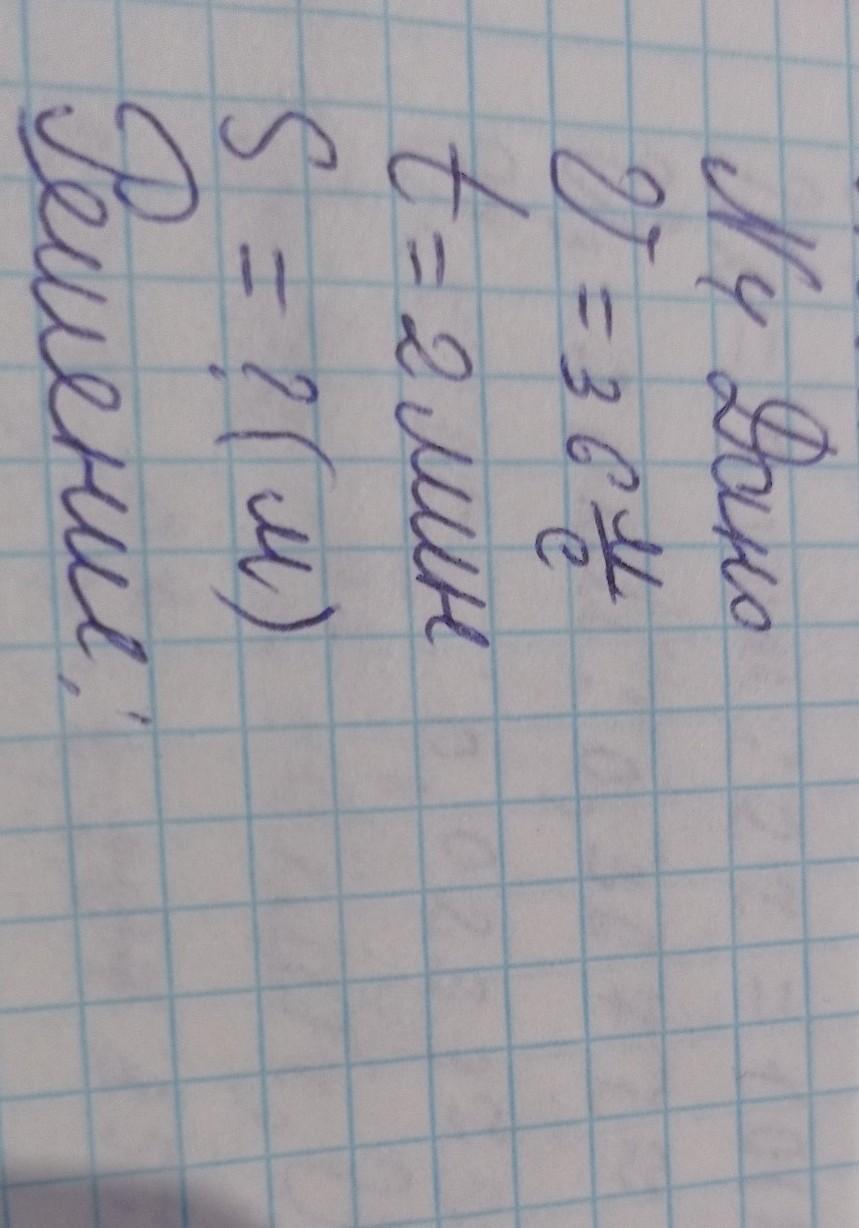 №4 Дано
V = 36 м/с
t = 2 мин
S = ? (м)
Решение: